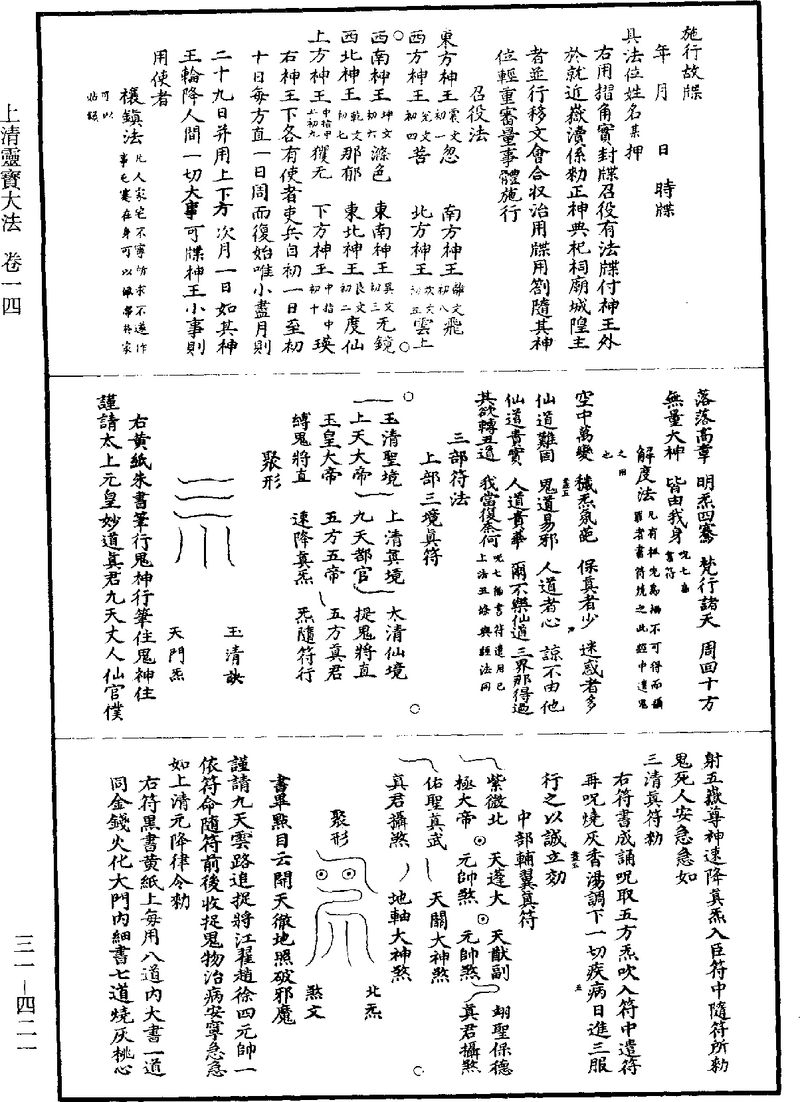 上清靈寶大法　卷一四
三一－四二一
施行故牒
年　月　日　時牒
具法位姓名某押
右用摺角實封牒召役有法牒付神王外
於就近嶽瀆係勑正神典祀祠廟城隍主
者並行移文會合收治用牒用劄隨其神
位輕重審量事體施行
召役法
東方神王震文初一忽　南方神王離文初八飛
西方神王兌文初四菩　北方神王坎文初五雲上
西南神王坤文初六滌色　東南神王巽文初三无鏡
西北神王乾文初七那郁　東北神王艮文初二度仙
上方神王中指中上初九玃无　下方神王中指中初十瑛
右神王下各有使者吏兵自初一日至初
十日每方直一日周而復始唯小盡月則
二十九日并用上下方次月一日如其神
王輪降人間一切大事可牒神王小事則
用使者
禳鎮法凡人家宅不寧所求不遂作事屯蹇在身可以佩帶於家可以
落落高章　明炁四騫　梵行諸天　周回十方
無量大神　皆由我身呪七遍書符
解度法
空中萬變　穢炁氛葩　保真者少　迷惑者多
仙道難固　鬼道易邪　人道者心　諒不由他
仙道貴實　人道貴華　爾不樂仙道　三界那得過
其欲轉五道　我當復奈何
三部符法
上部三境真符
玉清聖境　上清真境　太清仙境
上天大帝　九天都官　捉鬼將直
玉皇大帝　五方五帝　五方真君
縛鬼將直　速降真炁　炁隨符行
聚形
玉清訣
天門炁
右黃紙朱書筆行鬼神行筆住鬼神住
謹請太上元皇妙道真君九天丈人仙官僕
射五嶽尊神速降真炁入臣符中隨符所勑
鬼死人安急急如
三清真符勑
右符書成誦呪取五方炁吹入符中遣符
再呪燒灰香湯調下一切疾病日進三服
行之以誠立効
中部輔翼真符
紫微北　天蓬大　天猷副　翊聖保德
極大帝　元帥煞　元帥煞　真君攝煞
佑聖真武　天關大神煞
真君攝煞　地軸大神煞
聚形
北炁
煞文
書畢點目云開天徹地照破邪魔
謹請九天雲路追捉將江翟趙徐四元帥一
依符命隨符前後收捉鬼物治病安寧急急
如上清元降律令勑
右符黑書黃紙上每用八道內大書一道
同金錢火化大門內細書七道燒灰桃心